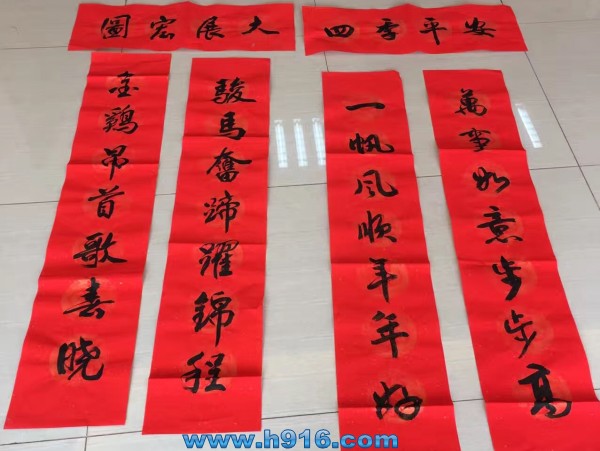 大展宏圖
四季平安
駿馬奮蹄躍錦程
金鷄昂首歌春晓
一帆风顺年年好
萬事如意步步高
www.h916.com